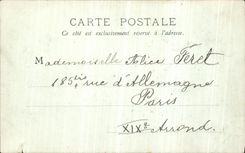 CARTE POSTALE
Ce côté est exclusivement réservé à l'adresse.
Mademoiselle Alice Féret
185bis rue d'Allemagne
Paris
XIXe Arrond.